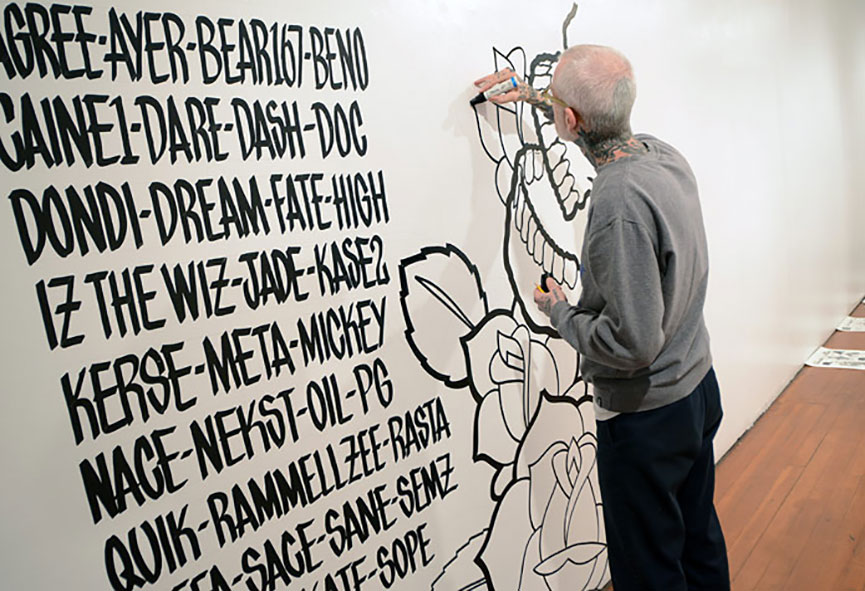 AGREE-AYER-BEAR167-BENO
CAINE1-DARE-DASH-DOC
DONDI-DREAM-FATE-HIGH
IZ THE WIZ-JADE-KASE2
KERSE-META-MICKEY
NACE-NEKST-OIL-PG
QUIK-RAMMELLZEE-RASTA
SACE-SANE-SEMZ
SOPE